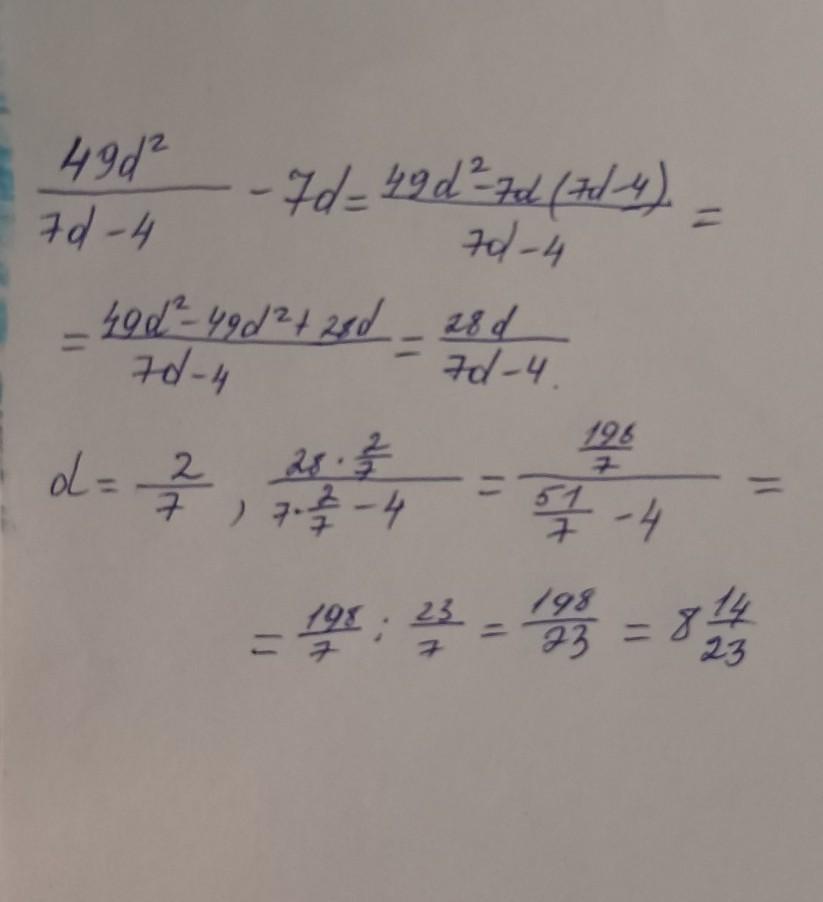 49d²/(7d-4) - 7d = (49d²-7d(7d-4))/(7d-4) =
= (49d²-49d²+28d)/(7d-4) = 28d/(7d-4).
d = 2/7, (28·2/7)/(7·2/7-4) = (198/7)/(51/7-4) =
= 198/7 : 23/7 = 198/23 = 8 14/23